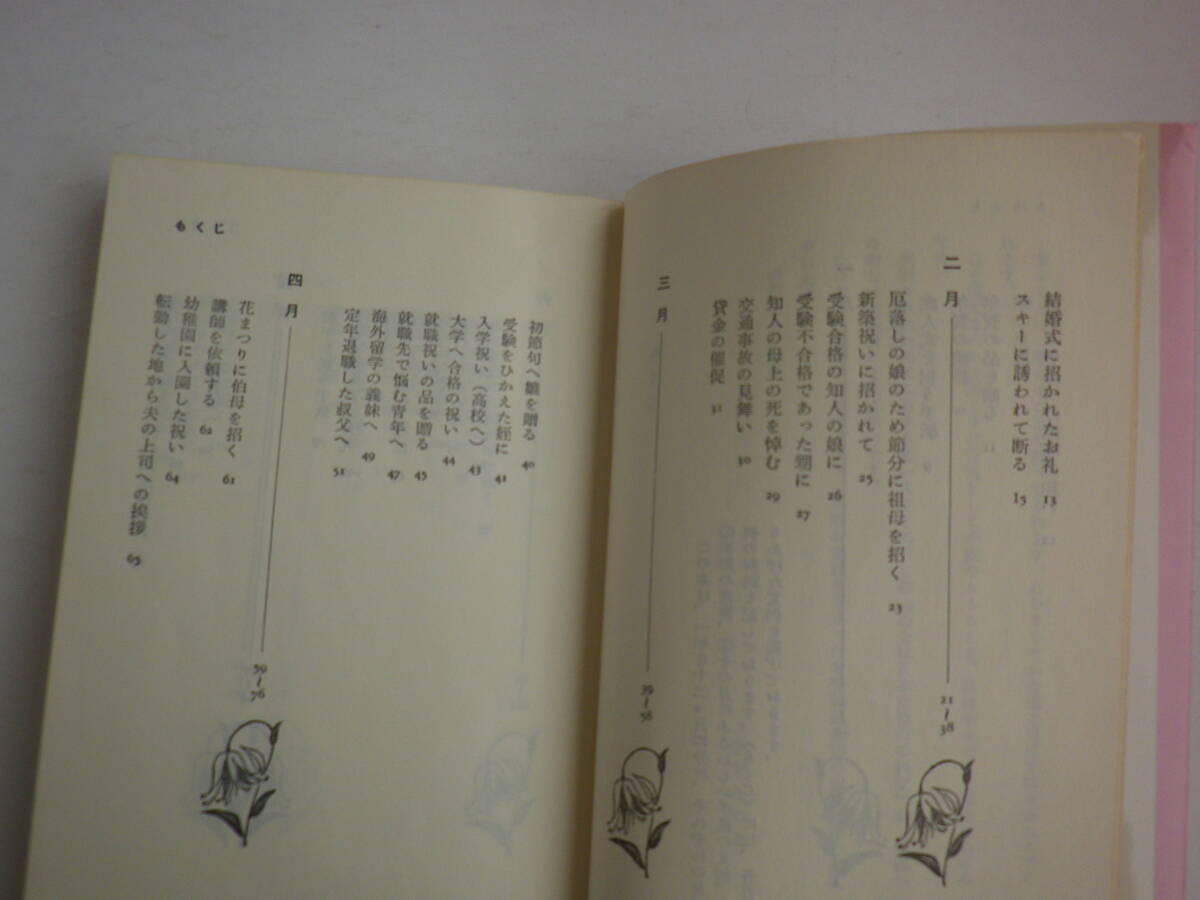 結婚式に招かれたお礼 13
スキーに誘われて断る 15
二月 21〜38
厄落しの娘のため節分に祖母を招く 23
新築祝いに招かれて 25
受験合格の知人の娘に 26
受験不合格であった甥に 27
知人の母上の死を悼む 29
交通事故の見舞い 30
貸金の催促 31
三月 39〜58
初節句へ雛を贈る 40
受験をひかえた姪に 41
入学祝い（高校へ） 43
大学へ合格の祝い 44
就職祝いの品を贈る 45
就職先で悩む青年へ 47
海外留学の義妹へ 49
定年退職した叔父へ 51
四月 59〜76
花まつりに伯母を招く 61
講師を依頼する 62
幼稚園に入園した祝い 64
転勤した地から夫の上司への挨拶 65
もくじ